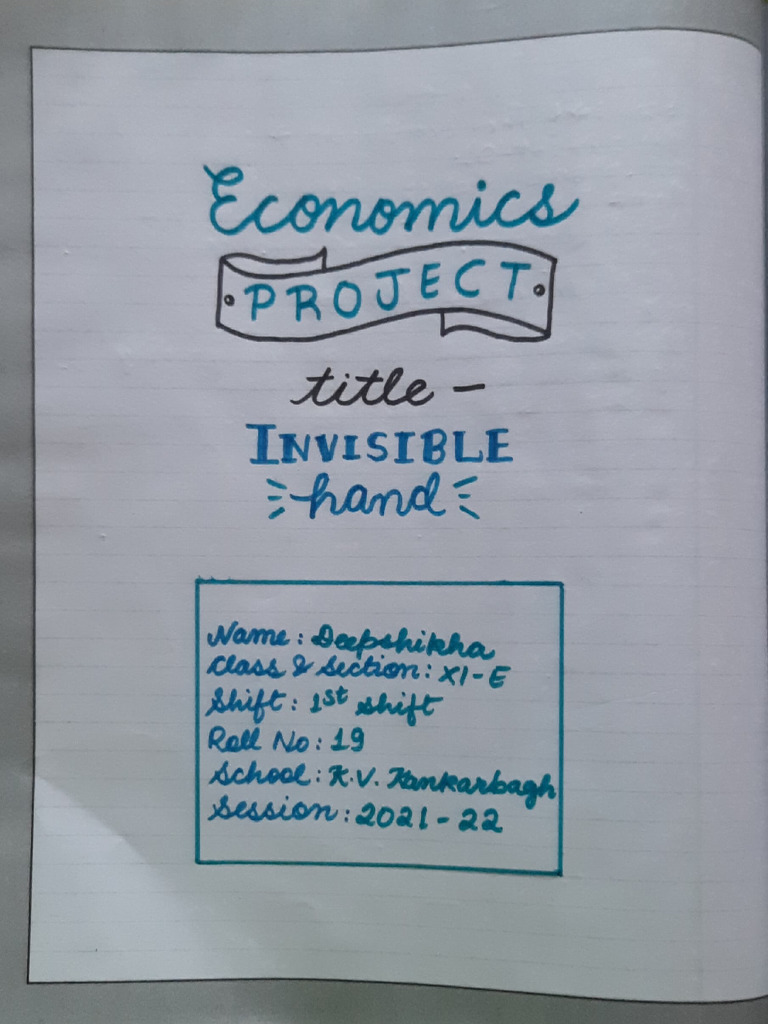 Economics
PROJECT
title -
INVISIBLE
hand
Name: Deepshikha
Class & Section: XI-E
Shift: 1st shift
Roll No: 19
School: K.V. Kankarbagh
Session: 2021-22